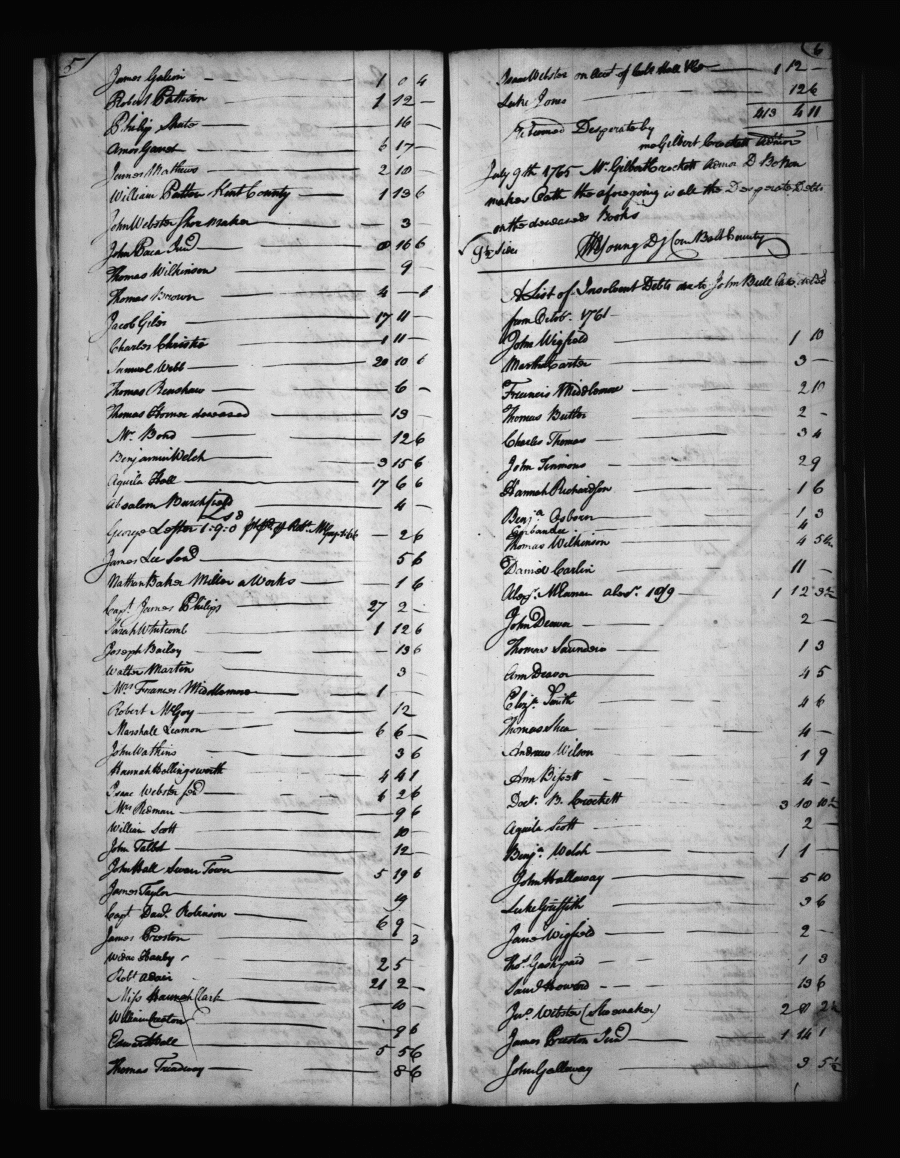 5
James Galion 1 0 4
Robert Pattison 1 12 —
Philip 16 —
Amos Garret 6 17 —
James Mathews 2 10 —
William Kent County 1 13 6
John Webster Shoe maker 3 —
John Paca Jund 8 16 6
Thomas Wilkinson 9 —
Thomas Brown 4 — 1
Jacob Giles 17 11 —
Charles Christie 1 11 —
Samuel Webb 20 10 6
Thomas Renshaw 6 —
Thomas Horner deceased 13 —
Mr. Bond 12 6
Benjamin Welch 3 15 6
Aquila Hall 17 6 6
Absalom Burchfield 4 —
George Lofton 1:9:0 2 6
James Lee Send 5 6
Nathan Baker Miller a Works 1 6
Capt. James Philips 27 2 —
Sarah Whitcomb 1 12 6
Joseph Bailey 13 6
Walter Martin 3
Mrs Frances Middlemore 1 —
Robert McGoy 12
Marshall Leamon 6 6 —
John Watkins 3 6
Hannah Hollingsworth 4 4 1
Isaac Webster 6 2 6
Mrs. Redman 9 6
William Scott 10 —
John Talbot 12 —
John Hall Swan Town 5 19 6
James Taylor 19
Capt Davd. Robinson 6 9 —
James Preston 3
Widow Hanby 2 5
Robt Adair 21 2 —
Miss Hannah Clark 10 —
William 9 6
Edward Hall 5 5 6
Thomas Treadway 8 6
6
Isaac Webster on Acct of 1 12 —
Luke Jones 12 6
413 6 11
Returned Desperate by
me Gilbert Crockett Admor
July 9th 1765 Mr. Gilbert Crockett Admor D B Non
makes Oath the aforegoing is all the Desperate Debts
on the deceaseds Books
9th Sides Young D Com Balt County
A List of Insolvent Debts due to John Bull
from Octob. 1761
John Wigfield 1 10
Martha Carter 3 —
Frances Middlemore 2 10
Thomas Butler 2 —
Charles Thomas 3 4
John Timmons 2 9
Hannah Richardson 1 6
Benja. Osborn 1 3
4
Thomas Wilkinson 4 5½
Daniel Carlin 11 —
Alexr. 10/9 1 12 3½
John Deaver 2 —
Thomas Saunders 1 3
Ann Deaver 4 5
Elizt. South 4 6
Thomas Shea 4 —
Andrew Wilson 1 9
Ann Bissett 4 —
Doct. B. Crockett 3 10 10½
Aquila Scott 2 —
Benja. Welch 1 1 —
John Hallaway 5 10
Luke Griffith 3 6
Jane Wigfield 2 —
Thos. 1 3
Saml Howard 13 6
Jno. Webster (Shoemaker) 2 8 2½
James Preston Jund 1 14 1
John Gallaway 3 5½